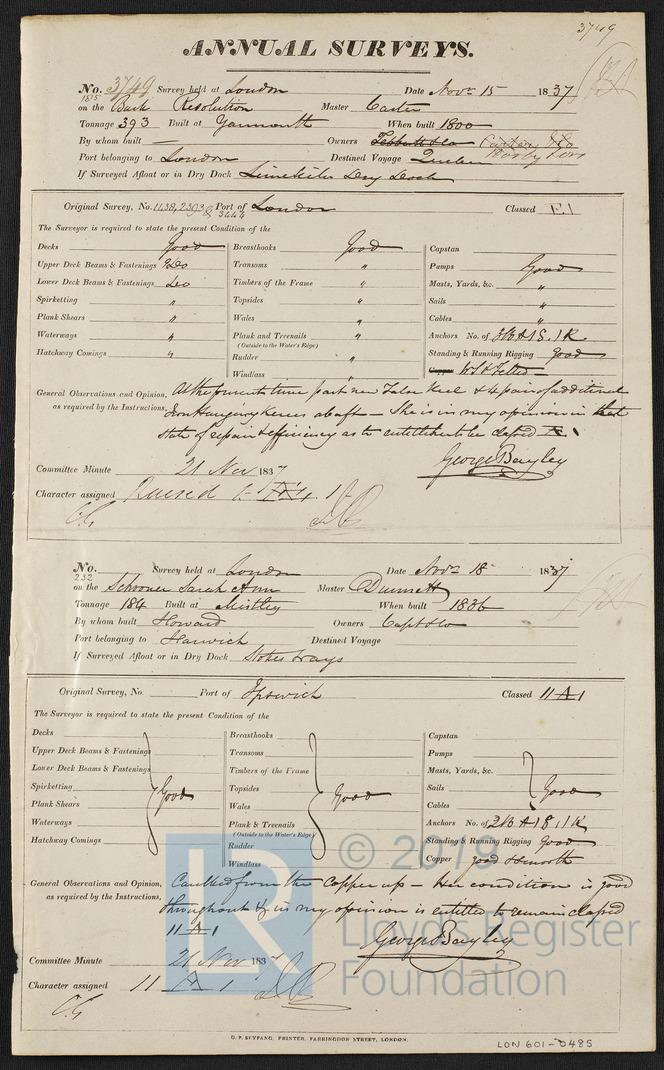 3749
ANNUAL SURVEYS.
No. 3749 Survey held at London Date Novr. 15 1837
on the Bark Resolution Master Carter
Tonnage 393 Built at Yarmouth When built 1800
By whom built — Owners
Port belonging to London Destined Voyage Quebec
If Surveyed Afloat or in Dry Dock Limekiln Dry Dock
Original Survey, No. 1438, 2393 & 3444 Port of London Classed E1
The Surveyor is required to state the present Condition of the
Decks Good
Upper Deck Beams & Fastenings Do
Lower Deck Beams & Fastenings Do
Spirketting "
Plank Shears "
Waterways "
Hatchway Comings "
Breasthooks Good
Transoms "
Timbers of the Frame "
Topsides "
Wales "
Plank and Treenails "
(Outside to the Water's Edge)
Rudder "
Windlass "
Capstan
Pumps Good
Masts, Yards, &c. "
Sails "
Cables "
Anchors No. of 3B A 1S. 1K
Standing & Running Rigging Good
Copper Wd & Felted
General Observations and Opinion, At the present time part new False Keel & 4 pair of additional
as required by the Instructions, Iron Hanging Knees abaft — She is in my opinion in that
state of repair & efficiency as to entitled to be classed Æ 1
George Bayley
Committee Minute 21 Nov 1837
Character assigned
No. 232 Survey held at London Date Novr. 18 1837
on the Schooner Sarah Ann Master Dunnett
Tonnage 184 Built at Mistley When built 1836
By whom built Howard Owners Capt & Co
Port belonging to Harwich Destined Voyage
If Surveyed Afloat or in Dry Dock Stokes Ways
Original Survey, No. Port of Ipswich Classed 11 A 1
The Surveyor is required to state the present Condition of the
Decks
Upper Deck Beams & Fastenings
Lower Deck Beams & Fastenings
Spirketting Good
Plank Shears
Waterways
Hatchway Comings
Breasthooks
Transoms
Timbers of the Frame
Topsides Good
Wales
Plank & Treenails
(Outside to the Water's Edge)
Rudder
Windlass
Capstan
Pumps
Masts, Yards, &c.
Sails Good
Cables
Anchors No. of 2B A 1S, 1K
Standing & Running Rigging Good
Copper good & smooth
General Observations and Opinion, Caulked from the Copper up — Her condition is good
as required by the Instructions, throughout & is in my opinion is entitled to remain classed
11 A 1
George Bayley
Committee Minute 21 Nov 1837
Character assigned 11 A 1
G. F. SEYFANG, PRINTER, FARRINGDON STREET, LONDON.
LON 601-0485
© 2019
Lloyd's Register
Foundation